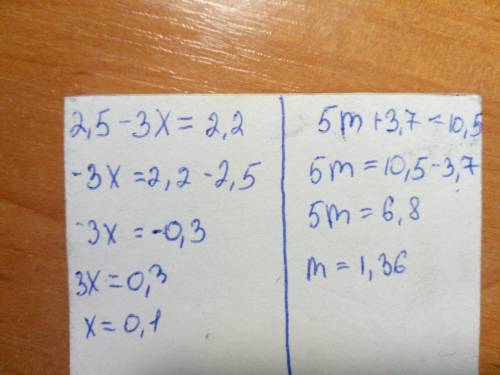 2,5 - 3x = 2,2
-3x = 2,2 - 2,5
-3x = -0,3
3x = 0,3
x = 0,1
5m + 3,7 = 10,5
5m = 10,5 - 3,7
5m = 6,8
m = 1,36